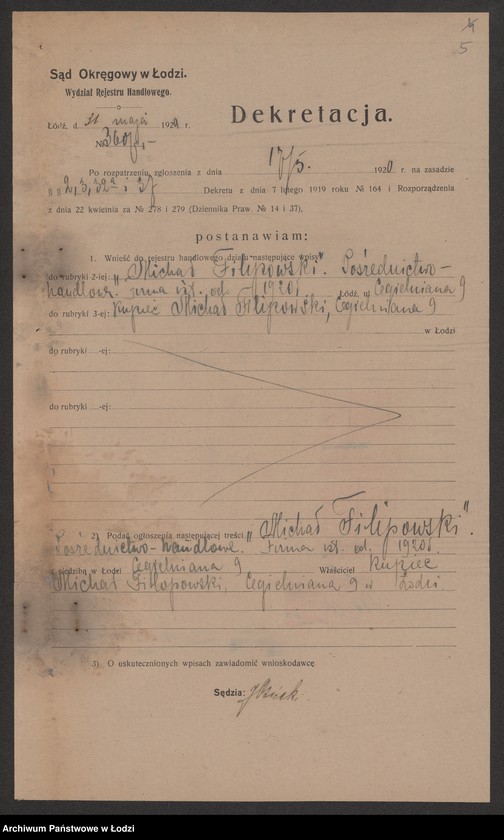 4
5
Sąd Okręgowy w Łodzi.
Wydział Rejestru Handlowego.
Łódź, d. 21 maja 1920 r.
Dekretacja.
Po rozpatrzeniu zgłoszenia z dnia 17/5. 1920 r. na zasadzie
Dekretu z dnia 7 lutego 1919 roku № 164 i Rozporządzenia
z dnia 22 kwietnia za № 278 i 279 (Dziennika Praw. № 14 i 37),
postanawiam:
1. Wnieść do rejestru handlowego działu następujące wpisy
do rubryki 2-iej: „Michał Filipowski". Pośrednictwo-
handlowe. firma ist. od 1920 r. Łódź, ul Cegielniana 9
do rubryki 3-ej: Kupiec Michał Filipowski, Cegielniana 9
w Łodzi
do rubryki -ej:
do rubryki -ej:
2) Podać ogłoszenia następującej treści „Michał Filipowski".
Pośrednictwo-handlowe. Firma ist. od. 1920 r.
z siedzibą w Łodzi Cegielniana 9 Właściciel Kupiec
Michał Filipowski, Cegielniana 9 w Łodzi
3) O uskutecznionych wpisach zawiadomić wnioskodawcę
Sędzia:
Archiwum Państwowe w Łodzi